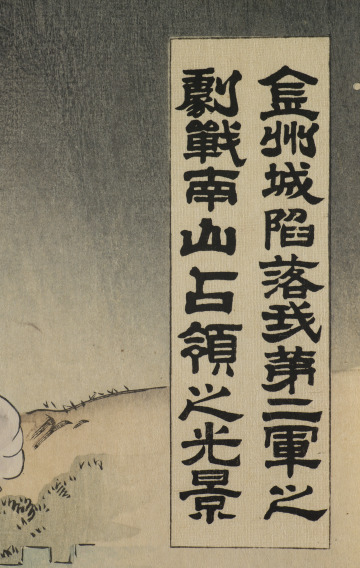 金州城陥落我第二軍之
劇戦南山占領之光景